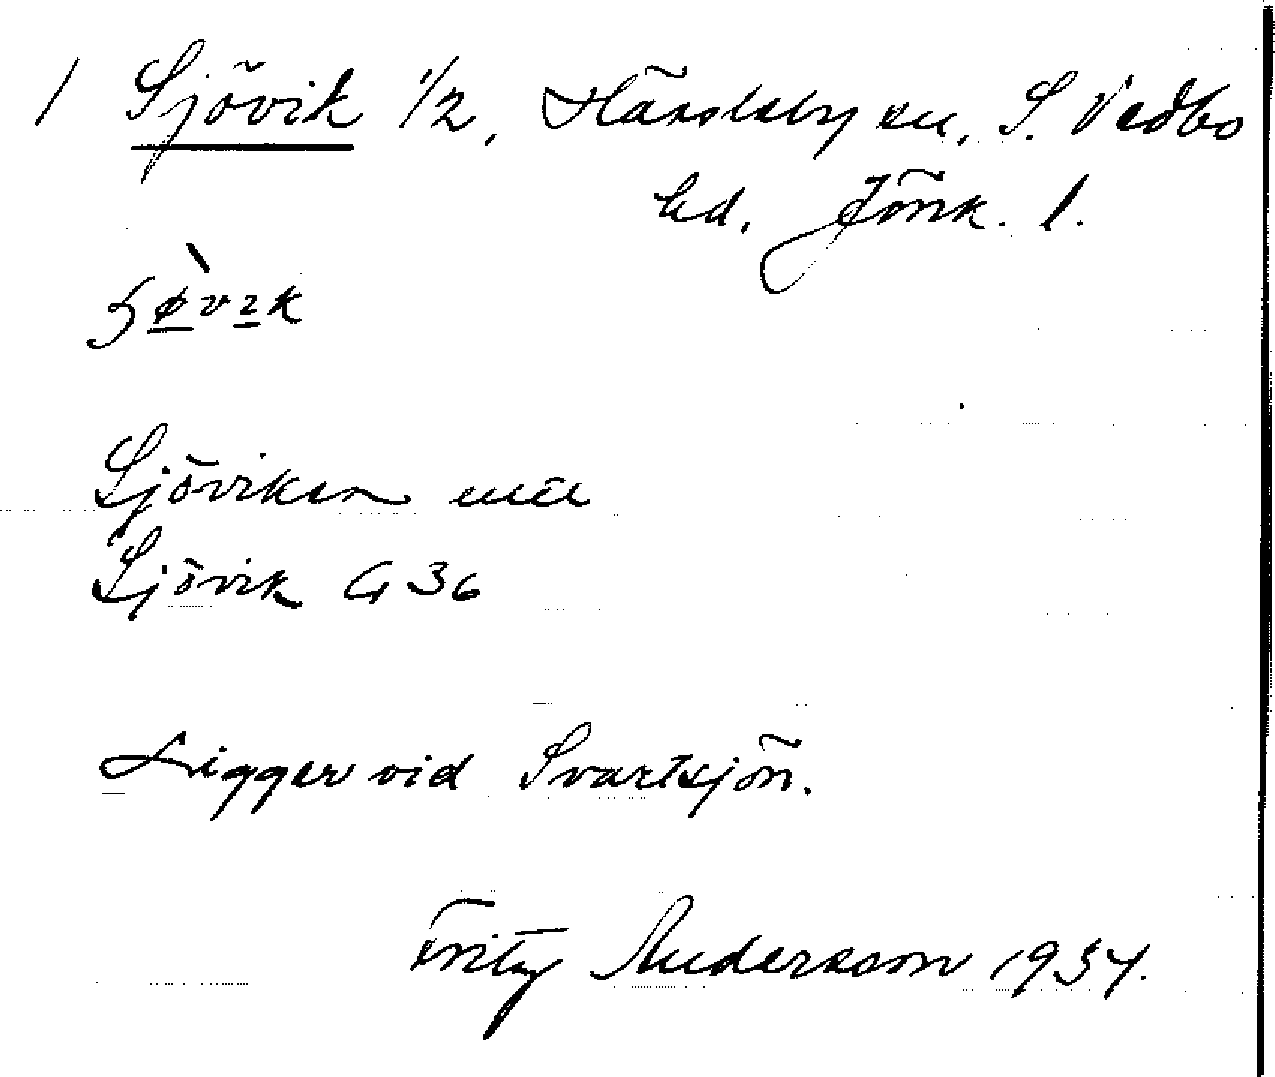 1 Sjövik 1/2, Hässleby sn, S. Vedbo
hd, Jönk. l.
Sjöviken
Sjövik G 36
Ligger vid Svartsjön.
Fritz Andersson 1934.